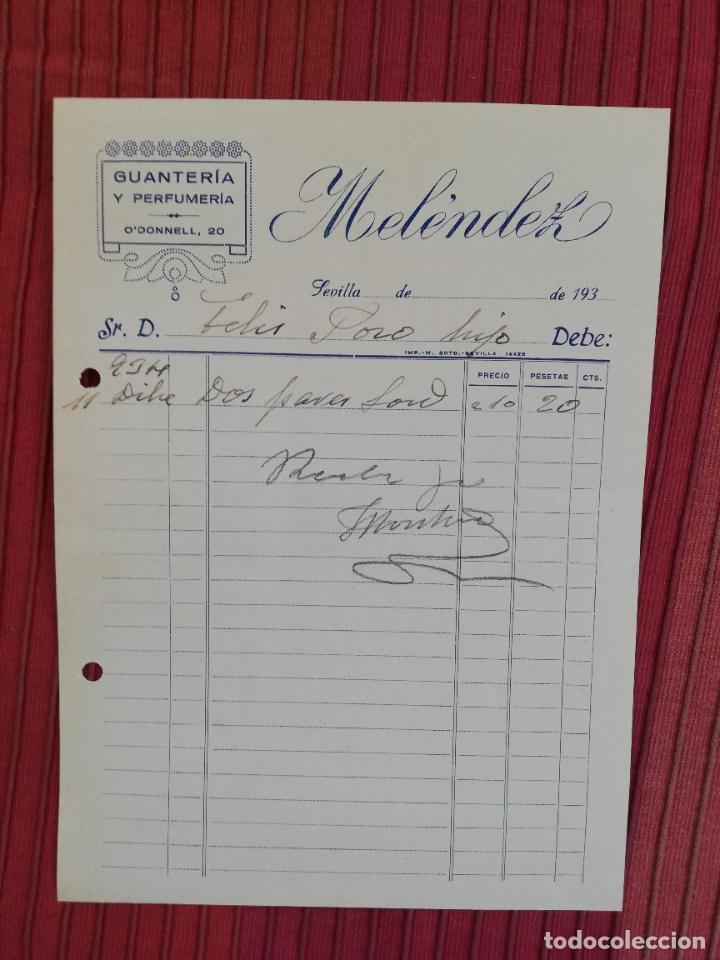 GUANTERÍA
Y PERFUMERÍA
O'DONNELL, 20
Meléndez
Sevilla de de 193
Sr. D. Felis Poro hijo Debe:
IMP.-M. SOTO.-SEVILLA 14423
PRECIO PESETAS CTS.
934
11 Dibe Dos pares a 10 20
todocoleccion
todocoleccion.net